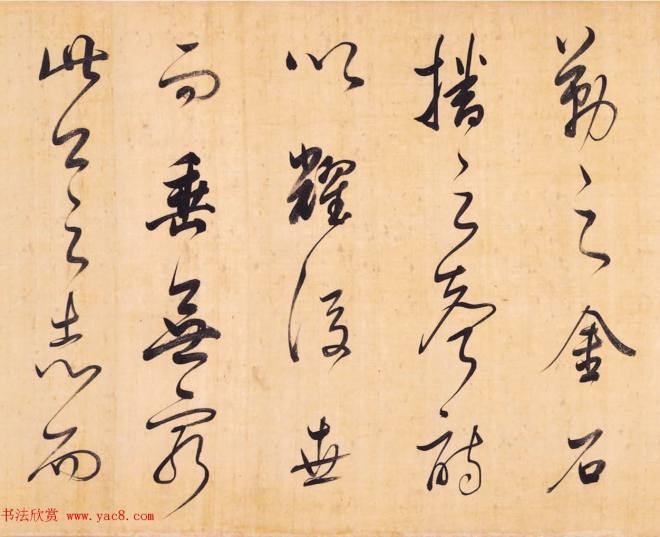 勒之金石
播之聲詩
以耀後世
而垂無窮
此公之志而
书法欣赏 www.yac8.com